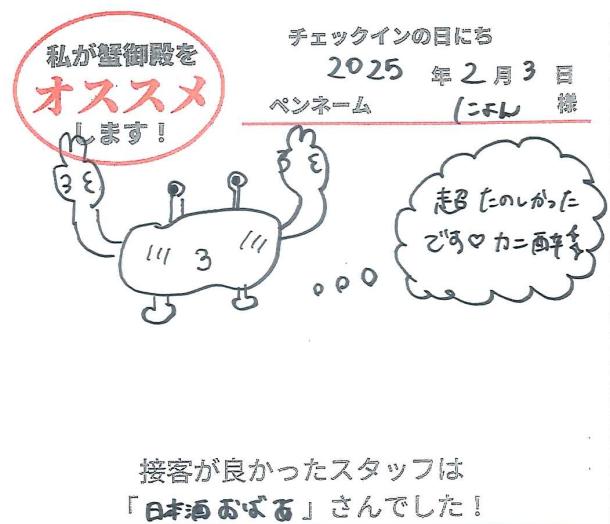 私が蟹御殿を
オススメ
します！
チェックインの日にち
2025 年 2 月 3 日
ペンネーム にょん 様
超 たのしかった
です♡ カニ酔
接客が良かったスタッフは
「日本酒おばあ」さんでした！